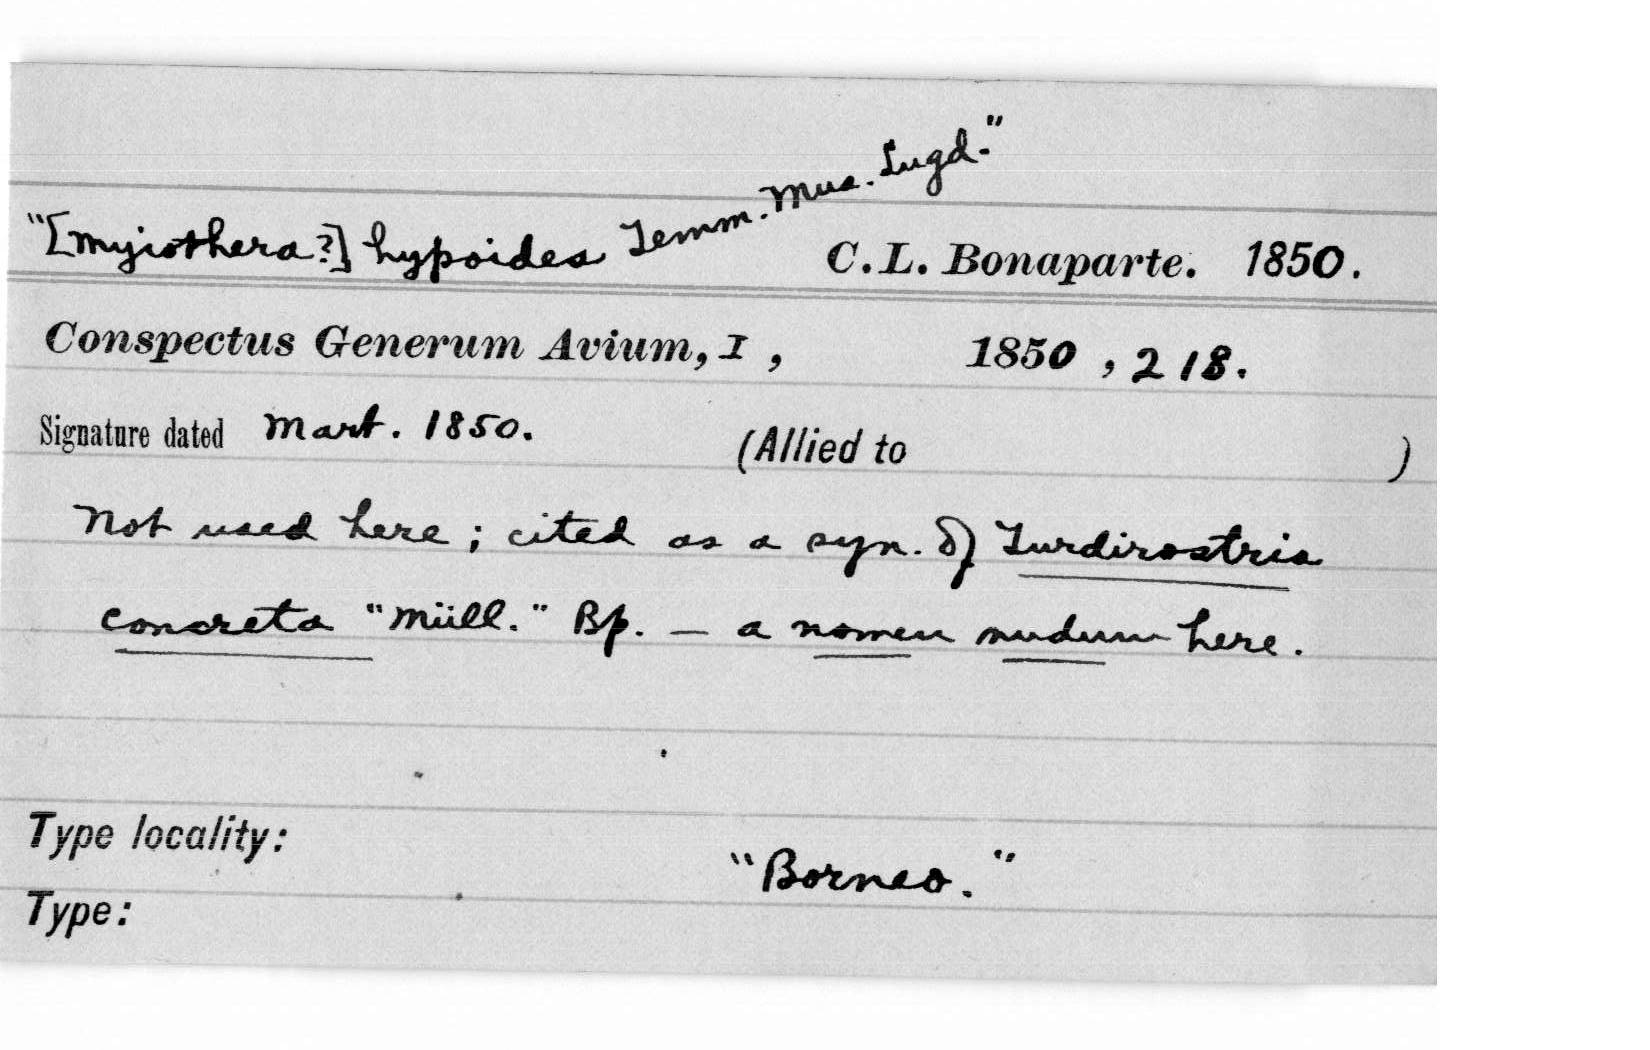 "[Myiothera?] hypoides Temm. Mus. Lugd." C.L. Bonaparte. 1850.
Conspectus Generum Avium, I , 1850 , 218.
Signature dated Mart. 1850. (Allied to )
Not used here; cited as a syn. of Turdirostris
concreta "Müll." Bp. — a nomen nudum here.
Type locality: "Borneo."
Type: